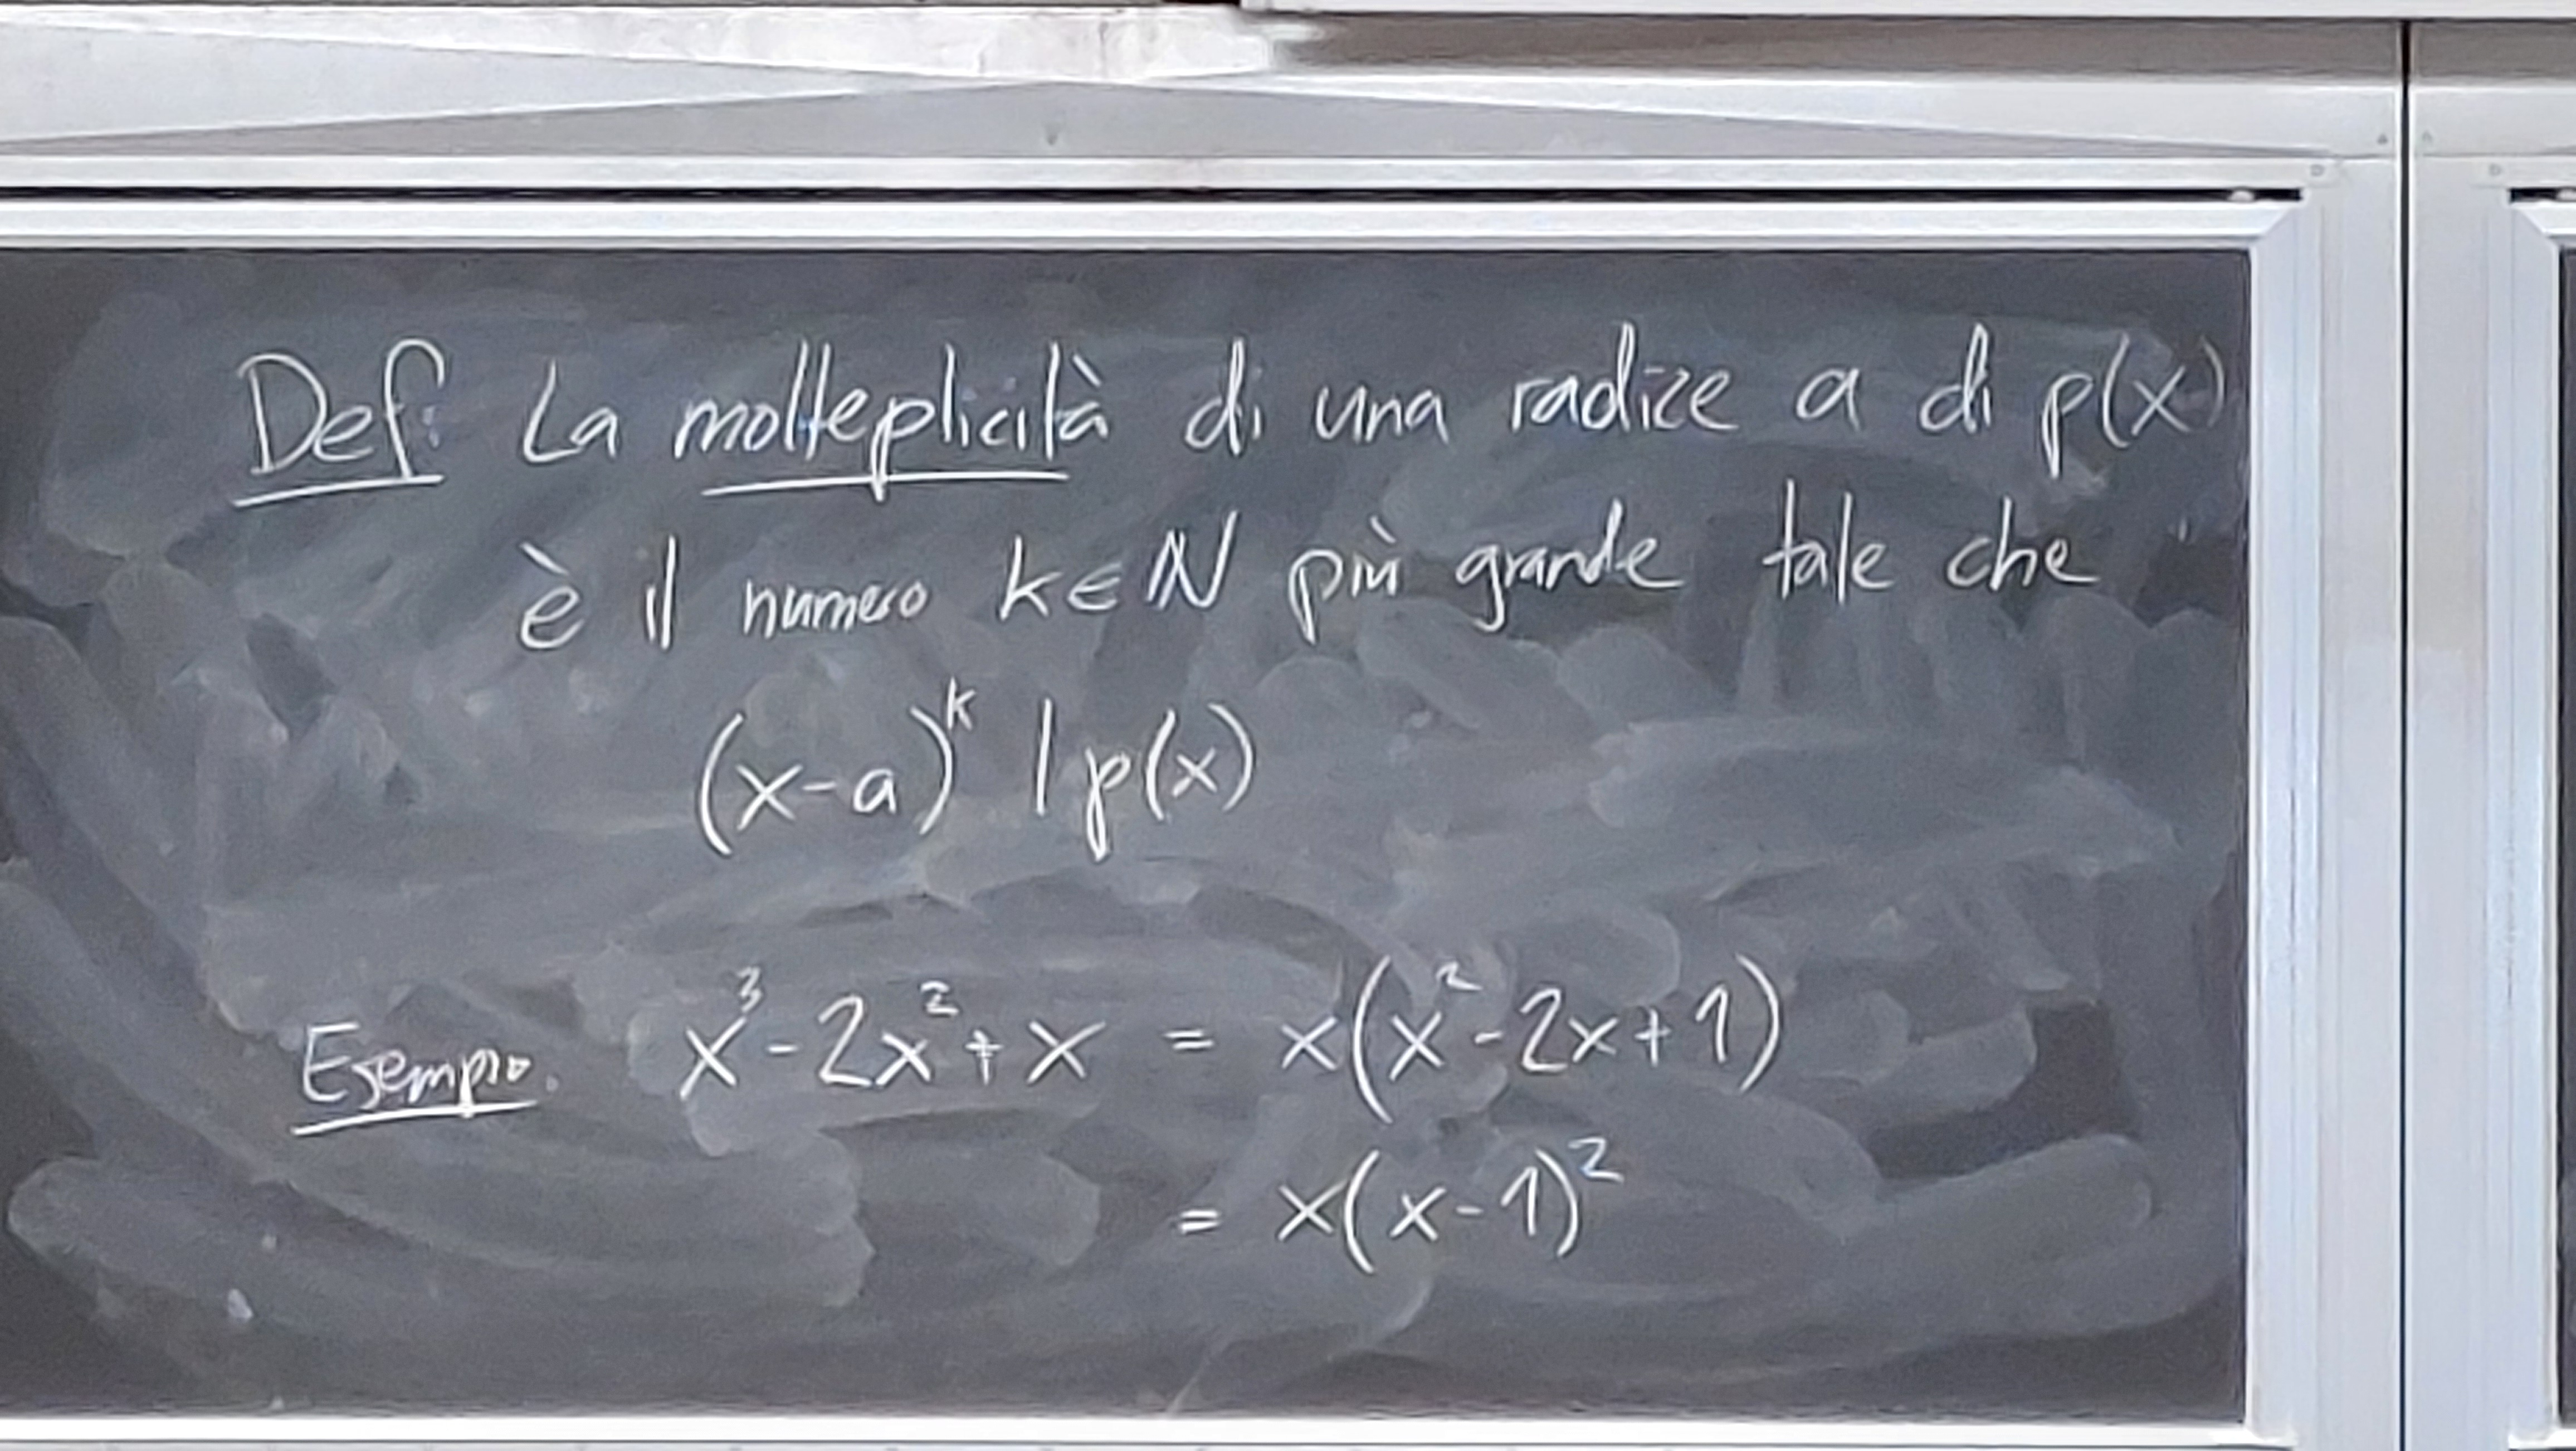 Def: La molteplicità di una radice a di p(x)
è il numero k ∈ ℕ più grande tale che
(x-a)^k | p(x)
Esempio. x³-2x²+x = x(x²-2x+1)
= x(x-1)²